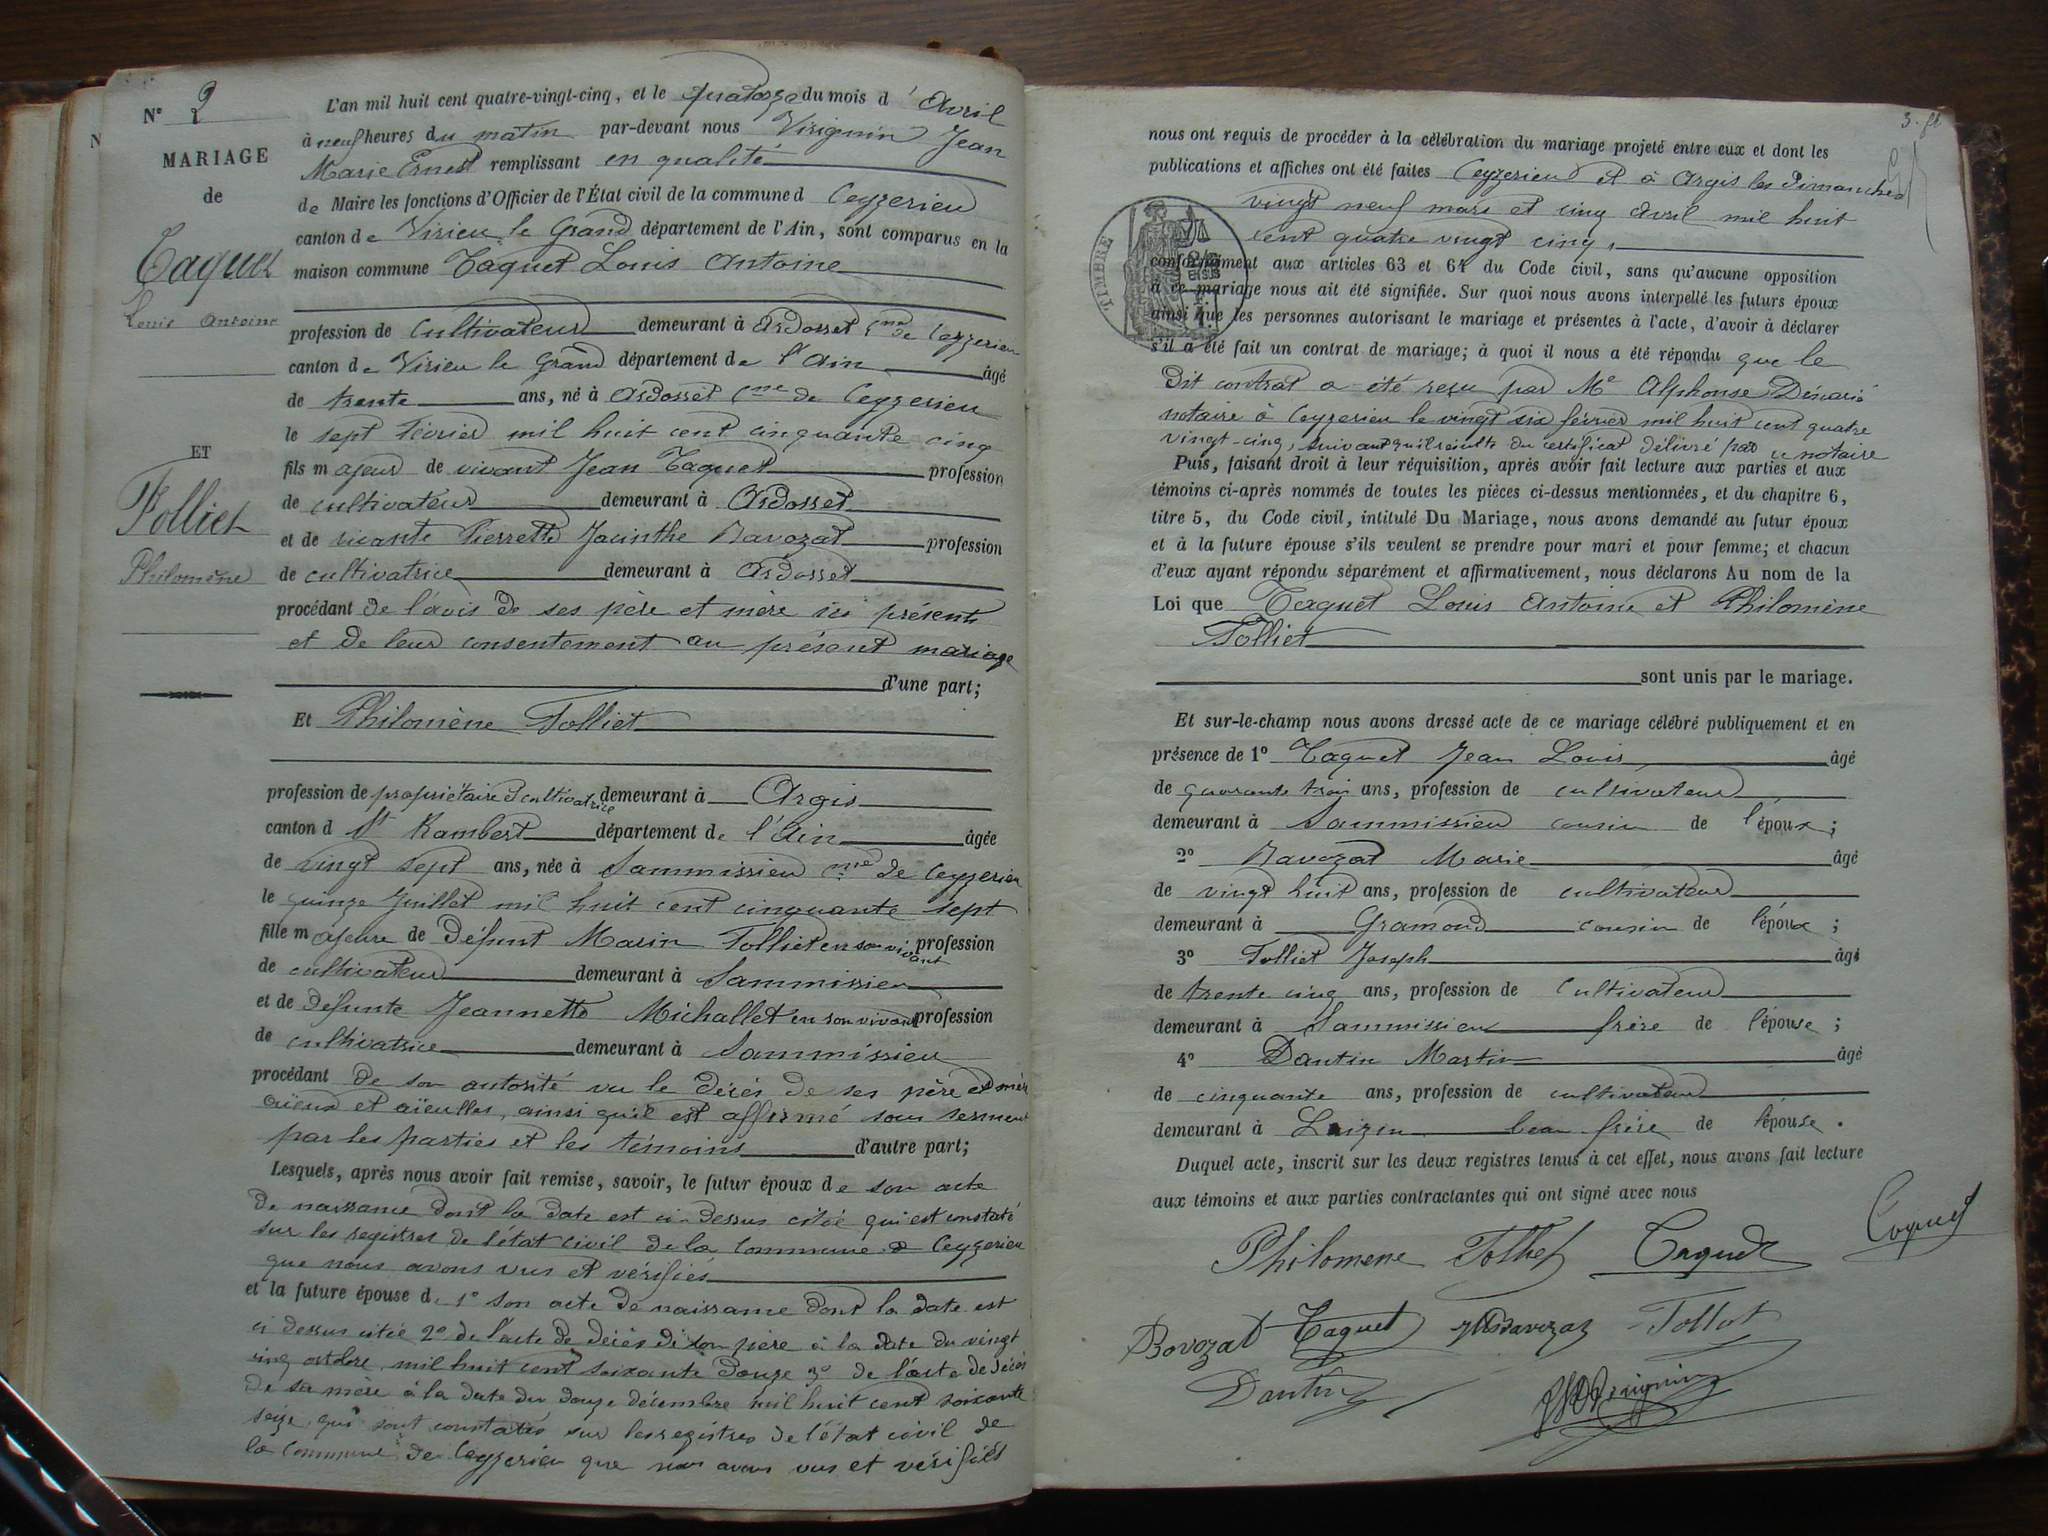 N° 2
MARIAGE
de
Taquet
Louis Antoine
ET
Tolliet
Philomène
L'an mil huit cent quatre-vingt-cinq, et le quatorze du mois d'Avril
à neuf heures du matin par-devant nous Virignin Jean
Marie Ernest remplissant en qualité
de Maire les fonctions d'Officier de l'État civil de la commune d Ceyzerieu
canton de Virieu le Grand département de l'Ain, sont comparus en la
maison commune Taquet Louis Antoine
profession de cultivateur demeurant à Ardosset Cne de Ceyzerieu
canton de Virieu le Grand département de l'Ain âgé
de trente ans, né à Ardosset Cne de Ceyzerieu
le sept février mil huit cent cinquante cinq
fils majeur de vivant Jean Taquet profession
de cultivateur demeurant à Ardosset
et de vivante Pierrette Jacinthe Bavozat profession
de cultivatrice demeurant à Ardosset
procédant de l'avis de ses père et mère ici présents
et de leur consentement au présent mariage
d'une part;
Et Philomène Tolliet
profession de propriétaire et cultivatrice demeurant à Argis
canton d St Rambert département de l'Ain âgée
de vingt sept ans, née à Sammissieu Cne de Ceyzerieu
le quinze Juillet mil huit cent cinquante sept
fille majeure de Défunt Marin Tolliet en son vivant profession
de cultivateur demeurant à Sammissieu
et de Défunte Jeannette Michallet en son vivant profession
de cultivatrice demeurant à Sammissieu
procédant de son autorité vu le décès de ses père et mère
aïeux et aïeulles, ainsi qu'il est affirmé sous serment
par les parties et les témoins d'autre part;
Lesquels, après nous avoir fait remise, savoir, le futur époux de son acte
de naissance dont la date est ci-dessus citée qui est constaté
sur les registres de l'état civil de la commune de Ceyzerieu
que nous avons vus et vérifiés
et la future épouse d. 1° son acte de naissance dont la date est
ci dessus citée 2° de l'acte de décès de son père à la date du vingt
cinq octobre mil huit cent soixante douze 3° de l'acte de décès
de sa mère à la date du douze décembre mil huit cent soixante
seize, qui sont constatés sur les registres de l'état civil de
la commune de Ceyzerieu que nous avons vus et vérifiés
nous ont requis de procéder à la célébration du mariage projeté entre eux et dont les
publications et affiches ont été faites Ceyzerieu et à Argis les Dimanches
vingt neuf mars et cinq avril mil huit
cent quatre vingt cinq,
TIMBRE
conformément aux articles 63 et 64 du Code civil, sans qu'aucune opposition
à ce mariage nous ait été signifiée. Sur quoi nous avons interpellé les futurs époux
ainsi que les personnes autorisant le mariage et présentes à l'acte, d'avoir à déclarer
s'il a été fait un contrat de mariage; à quoi il nous a été répondu que le
dit contrat a été reçu par Me Alphonse Dénarié
notaire à Ceyzerieu le vingt six février mil huit cent quatre
vingt-cinq, suivant qu'il résulte du certificat délivré par ce notaire
Puis, faisant droit à leur réquisition, après avoir fait lecture aux parties et aux
témoins ci-après nommés de toutes les pièces ci-dessus mentionnées, et du chapitre 6,
titre 5, du Code civil, intitulé Du Mariage, nous avons demandé au futur époux
et à la future épouse s'ils veulent se prendre pour mari et pour femme; et chacun
d'eux ayant répondu séparément et affirmativement, nous déclarons Au nom de la
Loi que Taquet Louis Antoine et Philomène
Tolliet
sont unis par le mariage.
Et sur-le-champ nous avons dressé acte de ce mariage célébré publiquement et en
présence de 1° Taquet Jean Louis âgé
de quarante trois ans, profession de cultivateur
demeurant à Sammissieu cousin de l'époux;
2° Bavozat Marie âgé
de vingt huit ans, profession de cultivateur
demeurant à Gramond cousin de l'époux;
3° Tolliet Joseph âgé
de trente cinq ans, profession de Cultivateur
demeurant à Sammissieu frère de l'épouse;
4° Dantin Martin âgé
de cinquante ans, profession de cultivateur
demeurant à beau frère de l'épouse.
Duquel acte, inscrit sur les deux registres tenus à cet effet, nous avons fait lecture
aux témoins et aux parties contractantes qui ont signé avec nous
Philomene Tolliet Taquet Taquet
Bavozat Taquet Bavozat Tolliet
Dantin Virignin